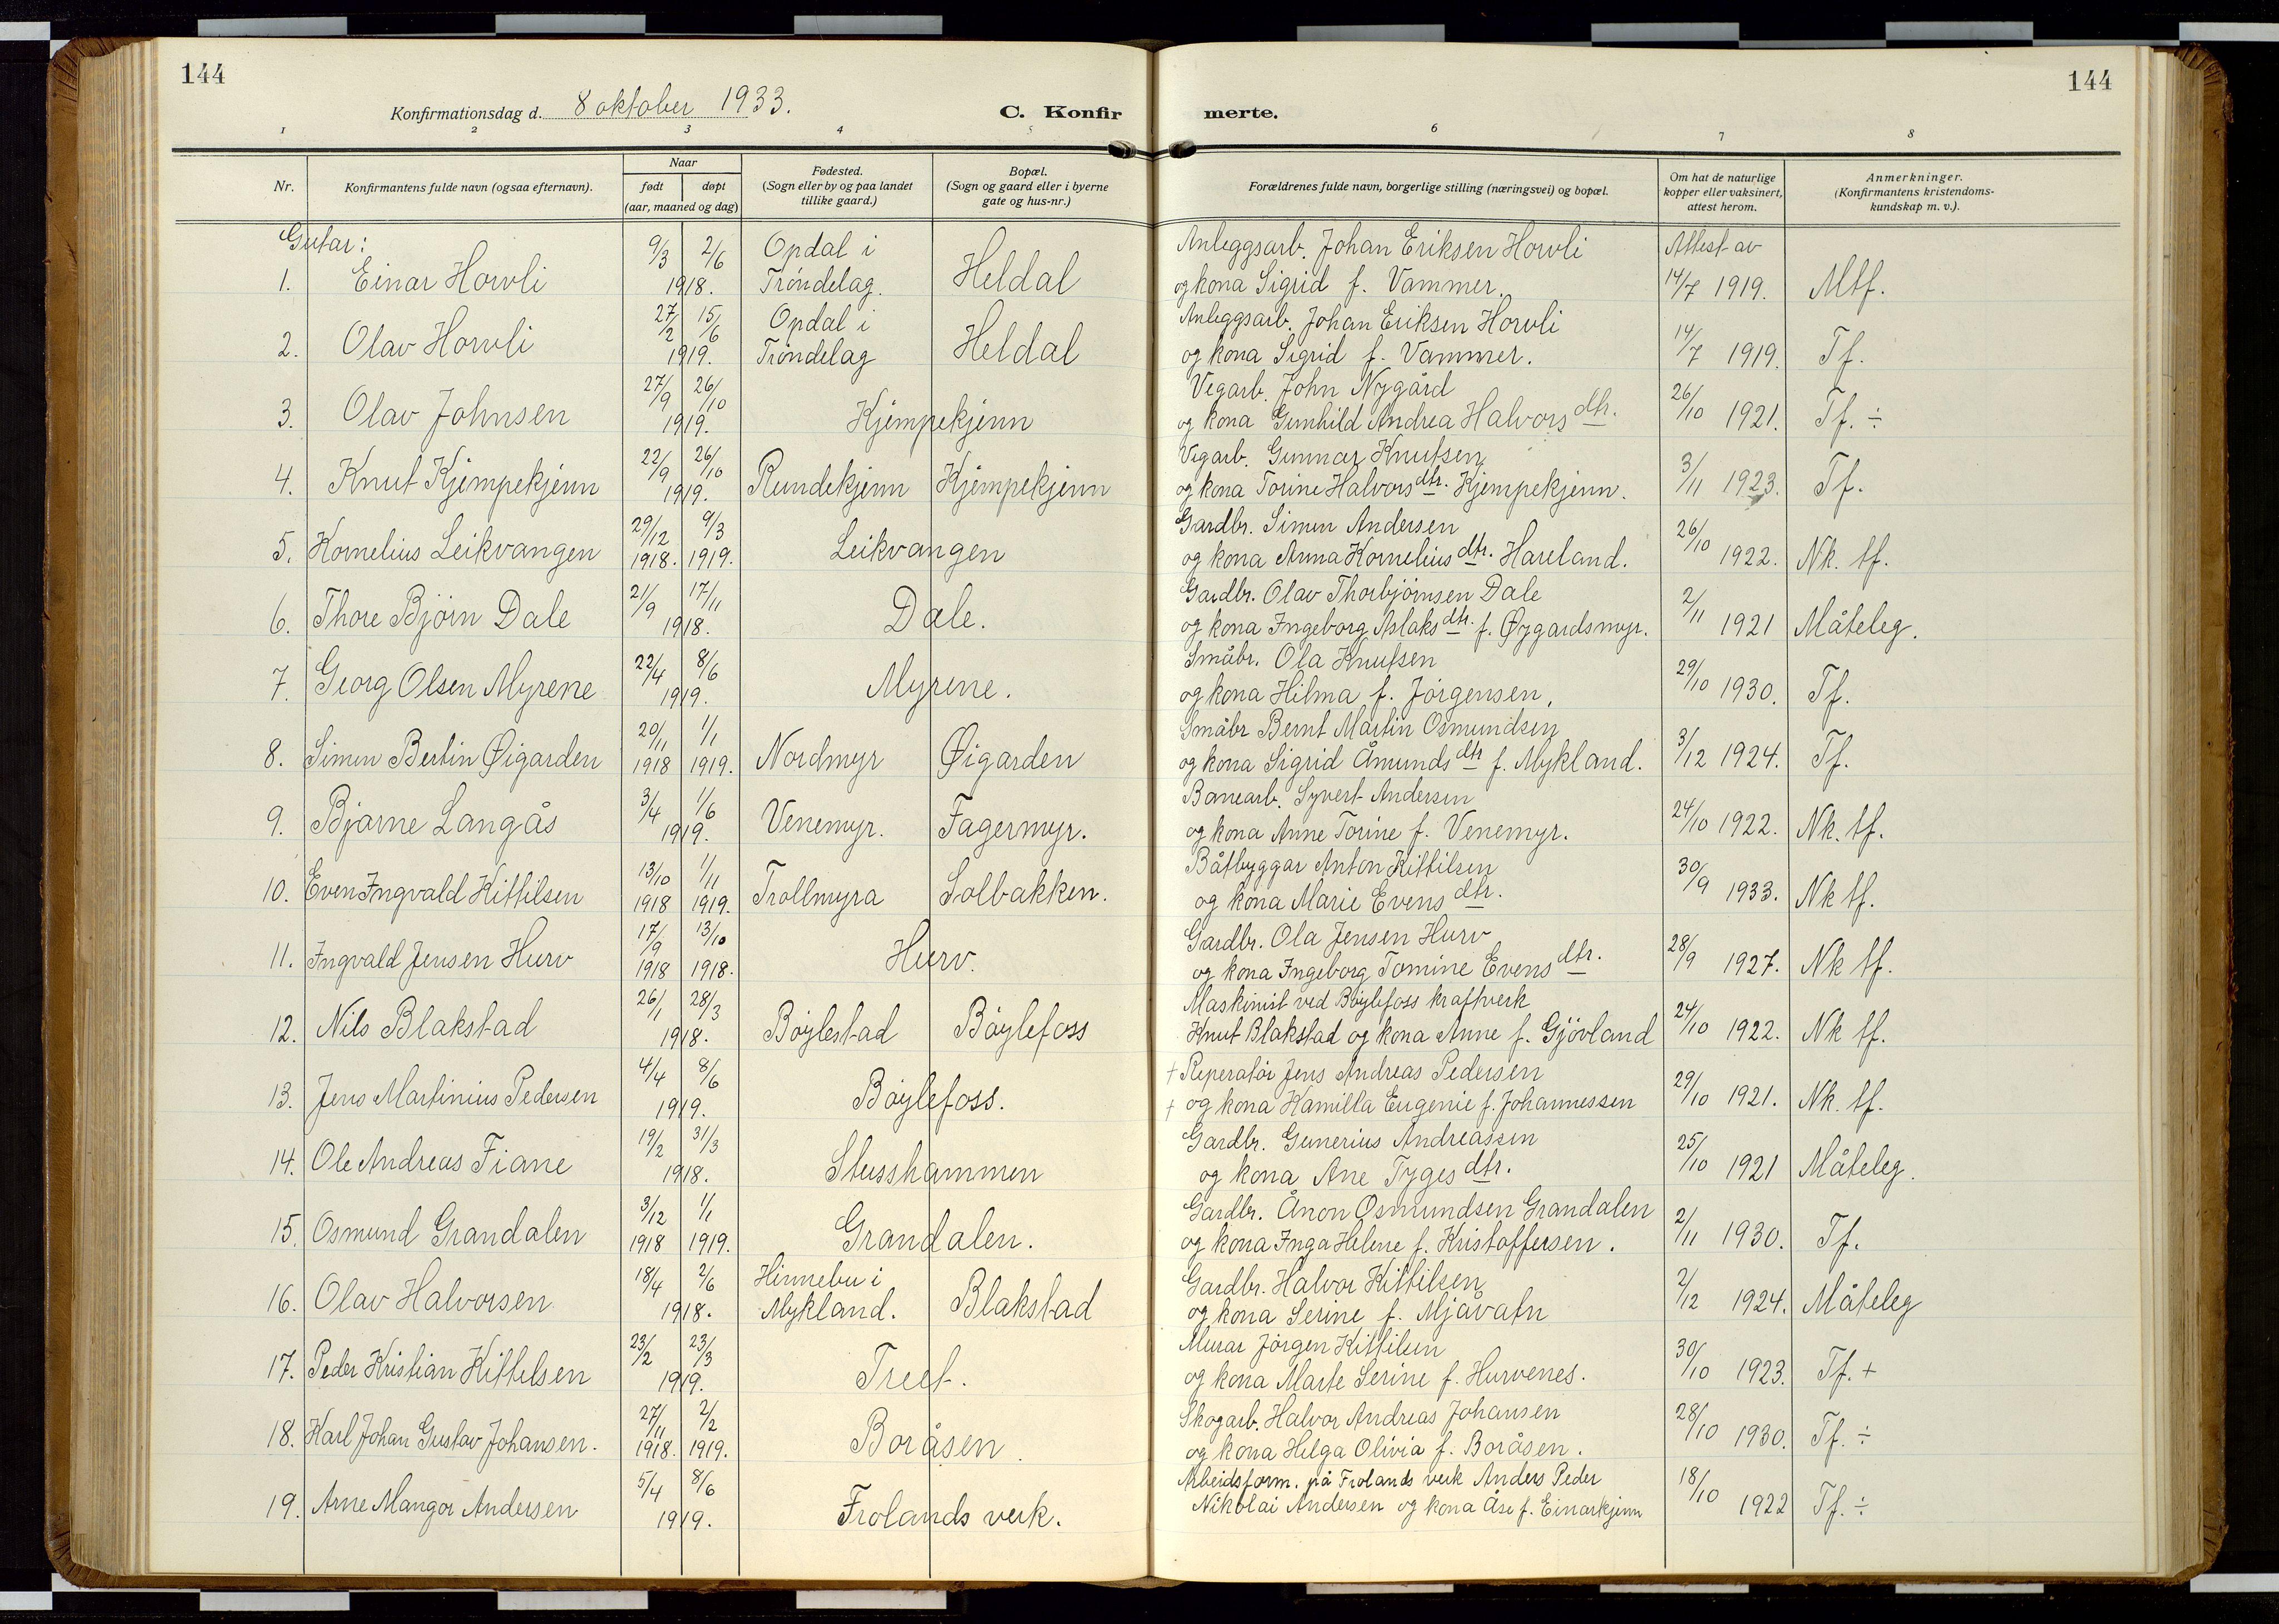 144
144
Konfirmationsdag d. 8 oktober 1933.
C. Konfir
merte.
1 2 3 4 5 6 7 8
Nr.
Konfirmantens fulde navn (ogsaa efternavn).
Naar
født døpt
(aar, maaned og dag)
Fødested.
(Sogn eller by og paa landet
tillike gaard.)
Bopæl.
(Sogn og gaard eller i byerne
gate og hus-nr.)
Forældrenes fulde navn, borgerlige stilling (næringsvei) og bopæl.
Om hat de naturlige
kopper eller vaksinert,
attest herom.
Anmerkninger.
(Konfirmantens kristendoms-
kundskap m. v.).
Gutar:
9/3 2/6 Opdal i Anleggsarb. Johan Eriksen Horvli Attest av
1. Einar Horvli 1918. Trøndelag. Heldal og kona Sigrid f. Vammer. 14/7 1919. Mtf.
27/2 15/6 Opdal i Anleggsarb. Johan Eriksen Horvli
2. Olav Horvli 1919. Trøndelag Heldal og kona Sigrid f. Vammer. 14/7 1919. Tf.
27/9 26/10 Vegarb. John Nygård
3. Olav Johnsen 1919. Kjempekjenn og kona Gunhild Andrea Halvorsdtr. 26/10 1921. Tf. ÷
22/9 26/10 Vegarb. Gunnar Knutsen
4. Knut Kjempekjenn 1919. Rundekjenn Kjempekjenn og kona Torine Halvorsdtr. Kjempekjenn. 3/11 1923. Tf.
29/12 9/3 Gardbr. Simen Andersen
5. Kornelius Leikvangen 1918. 1919. Leikvangen og kona Anna Korneliusdtr. Hareland. 26/10 1922. Nk. tf.
21/9 17/11 Gardbr. Olav Thorbjørnsen Dale
6. Thore Bjørn Dale 1918. Dale. og kona Ingeborg Aslaksdtr. f. Øygardsmyr. 2/11 1921 Måteleg.
22/4 8/6 Småbr. Ola Knutsen
7. Georg Olsen Myrene 1919. Myrene. og kona Hilma f. Jørgensen. 29/10 1930. Tf.
20/11 1/1 Småbr Bernt Martin Osmundsen
8. Simen Bertin Øigarden 1918 1919. Nordmyr Øigarden og kona Sigrid Åmundsdtr f. Mykland. 3/12 1924. Tf.
3/4 1/6 Banearb. Syvert Andersen
9. Bjarne Langås 1919. Venemyr. Fagermyr. og kona Anne Torine f. Venemyr. 24/10 1922. Nk. tf.
13/10 1/11 Båtbyggar Anton Kittilsen
10. Even Ingvald Kittilsen 1918 1919. Trollmyra Solbakken. og kona Marie Evensdtr. 30/9 1933. Nk tf.
17/9 13/10 Gardbr. Ola Jensen Hurv
11. Ingvald Jensen Hurv 1918 1918. Hurv. og kona Ingeborg Tomine Evensdtr. 28/9 1927. Nk tf.
26/1 28/3 Maskinist ved Bøylefoss kraftverk
12. Nils Blakstad 1918. Bøylestad Bøylefoss Knut Blakstad og kona Anne f. Gjøvland 24/10 1922. Nk tf.
4/4 8/6 + Reperatør Jens Andreas Pedersen
13. Jens Martinius Pedersen 1919. Bøylefoss. + og kona Kamilla Eugenie f. Johannessen 29/10 1921. Nk. tf.
19/2 31/3 Gardbr. Gunerius Andreassen
14. Ole Andreas Fiane 1918. Stusshammen og kona Ane Tygesdtr. 25/10 1921 Måteleg.
3/12 1/1 Gardbr. Ånon Osmundsen Grandalen
15. Osmund Grandalen 1918 1919. Grandalen. og kona Inga Helene f. Kristoffersen. 2/11 1930. Tf.
18/4 2/6 Hinnebu i Gardbr. Halvor Kittilsen
16. Olav Halvorsen 1918. Mykland. Blakstad og kona Serine f. Mjåvatn 2/12 1924. Måteleg
23/2 23/3 Murar Jørgen Kittilsen
17. Peder Kristian Kittelsen 1919. Treet. og kona Marte Serine f. Hurvenes. 30/10 1923. Tf. +
27/11 2/2 Skogarb. Halvor Andreas Johansen
18. Karl Johan Gustav Johansen. 1918. 1919. Boråsen. og kona Helga Olivia f. Boråsen. 28/10 1930. Tf. ÷
5/4 8/6 Arbeidsform. på Frolands verk Anders Peder
19. Arne Mangor Andersen 1919. Frolands verk. Nikolai Andersen og kona Åse f. Einarkjenn 18/10 1922 Tf. ÷